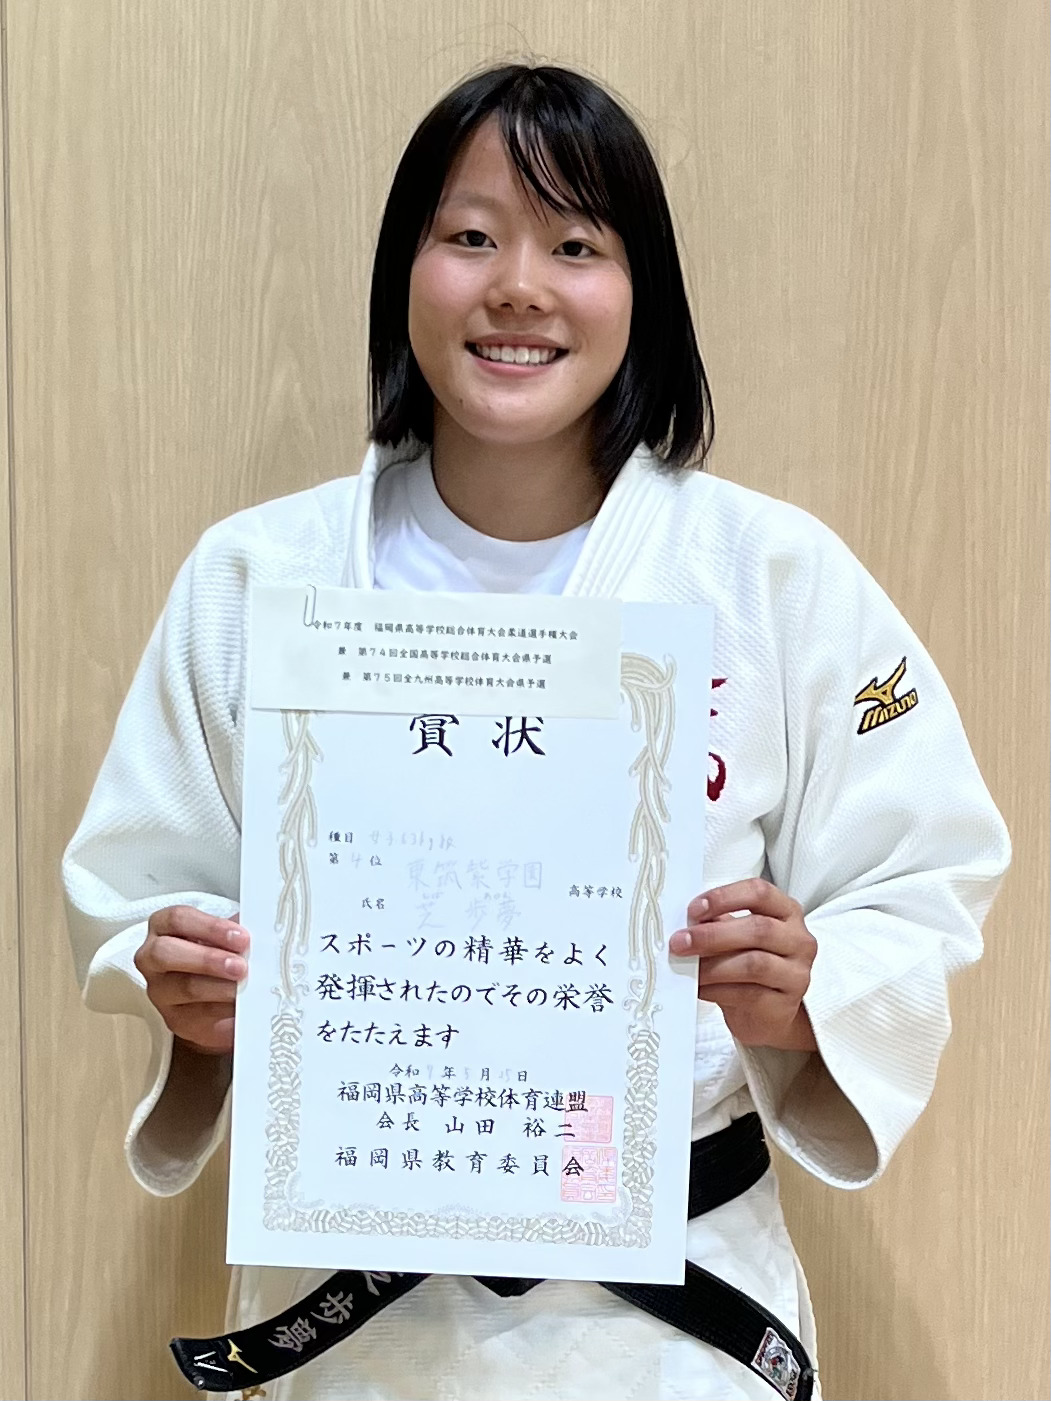 令和7年度 福岡県高等学校総合体育大会柔道選手権大会
兼 第74回全国高等学校総合体育大会県予選
兼 第75回全九州高等学校体育大会県予選
賞状
種目 女子63kg級
第 4 位
東筑紫学園 高等学校
氏名 芝 歩夢
スポーツの精華をよく
発揮されたのでその栄誉
をたたえます
令和 7 年 5 月 25 日
福岡県高等学校体育連盟
会長 山田 裕二
福岡県教育委員会
MIZUNO
芝 歩夢